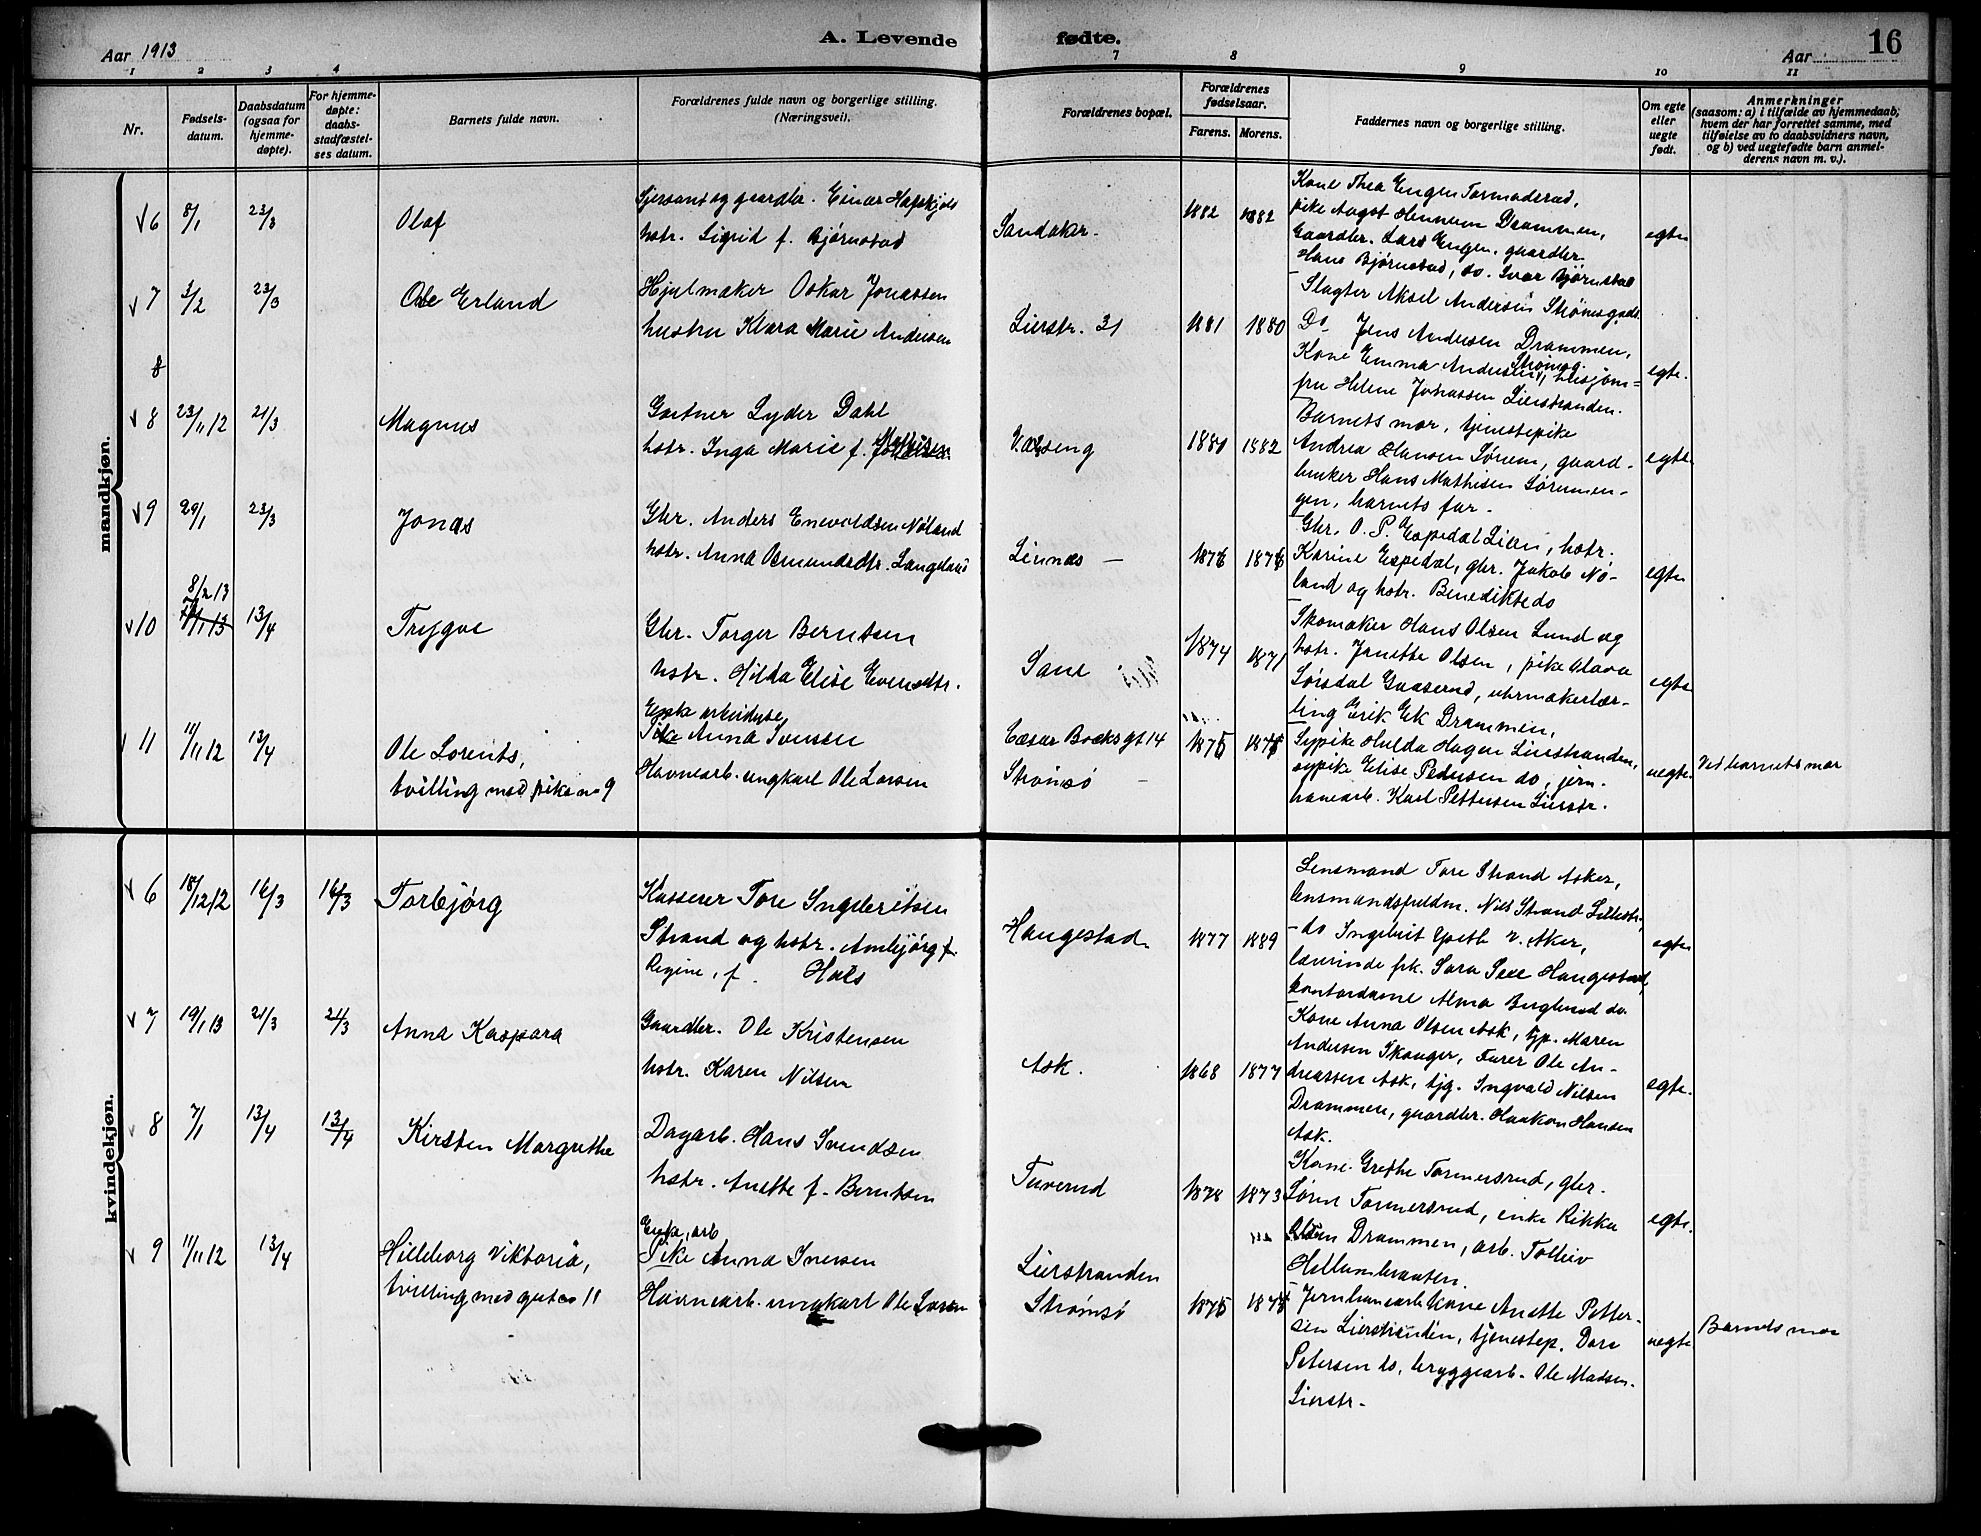 Aar 1913
A. Levende fødte.
Aar
16
1 2 3 4 7 8 9 10 11
Nr.
Fødsels-
datum.
Daabsdatum
(ogsaa for
hjemme-
døpte).
For hjemme-
døpte:
daabs-
stadfæstel-
ses datum.
Barnets fulde navn.
Forældrenes fulde navn og borgerlige stilling.
(Næringsvei).
Forældrenes bopæl.
Forældrenes
fødselsaar.
Farens. Morens.
Faddernes navn og borgerlige stilling.
Om egte
eller
uegte
født.
Anmerkninger
(saasom: a) i tilfælde av hjemmedaab,
hvem der har forrettet samme, med
tilføielse av to daabsvidners navn,
og b) ved uegtefødte barn anmel-
derens navn m. v.).
mandkjøn.
6 8/1 23/3
Olaf
gaardbr. Einar
hstr. Sigrid f. Bjørnstad
Sandaker.
1882 1882
Kone Thea Engen Tormodsrud,
pike Aagot Drammen,
Gaardbr. Lars Engen, gaardbr.
Hans Bjørnstad, do. Ivar Bjørnstad
egte
7 3/2 23/3
Ole Erland
Hjulmaker Oskar Jonassen
hustru Klara Marie Andersen
Lierstr. 31
1881 1880
Slagter Aksel Andersen Strømsgode
Do Jens Andersen Drammen,
Kone Emma Andersen Strømsg.,
fru Helene Johassen Lierstranden.
egte.
8
8 23/11 12 21/3
Magnus
Gartner Lyder Dahl
hstr. Inga Marie f. Mathisen
1880 1882
Barnets mor, tjenestepike
Andrea Hansen Sørum, gaard-
bruker Hans Mathisen Sørumen-
gen, barnets far.
egte
9 29/1 23/3
Jonas
Gbr. Anders Enevoldsen Nøland
hstr. Anna Osmundsdtr. Langeland
Linnæs —
1876 1876
Gbr. O. P. Espedal Lian, hstr.
Karine Espedal, gbr. Jakob Nø-
land og hstr. Benedikte do
egte
10 8/2 13 13/4
Trygve
Gbr. Torger Berntsen
hstr. Hilda Elise Evensdtr.
1874 1871
Skomaker Hans Olsen Lund og
hstr. Janette Olsen, pike Klara
Sørsdal Gaaserud, uhrmakerlær-
ling Erik Ek Drammen,
egte
11 11/11 12 13/4
Ole Lorents,
tvilling med pike no 9
Enke arbeiderske
Pike Anna Iversen
Havnearb. ungkarl Ole Larsen
Cæsar Boeks gt 14
Strømsø
1875 1875
Sypike Hulda Hagen Lierstranden,
sypike Elise Pedersen do, jern-
banearb. Karl Pettersen Lierstr.
uegte
Ved barnets mor
kvindekjøn.
6 18/12 12 16/3 16/3
Torbjørg
Kasserer Tore Ingebritsen
Strand og hstr. Ambjørg f.
Regine, f. Hals
Haugestad
1877 1889
Lensmand Tore Strand Asker,
lensmandsfuldm. Nils Strand Lillestr.,
do Ingebrit v. Aker,
lærerinde frk. Sara Sexe Haugestad,
kontordame Alma Berglund do
egte
7 19/1 13 21/3 21/3
Anna Kaspara
Gaardbr. Ole Kristensen
hstr. Karen Nilsen
Ask.
1868 1877
Kone Anna Olsen Ask, tjp. Maren
Andersen Skouger, Furer Ole An-
dreassen Ask, tjg. Ingvald Nilsen
Drammen, gaardbr. Haakon Hansen
Ask.
egte.
8 7/1 13/4 13/4
Kirsten Margrethe
Dagarb. Hans Svendsen
hstr. Anette f. Berntsen
Tuverud
1878 1873
Kone Grethe Tormersrud, gbr.
Søren Tormersrud, enke Rikka
Olsen Drammen, arb. Tolleiv
Hellumbraaten.
egte.
9 11/11 12 13/4
Hilleborg Viktoria,
tvilling med gut no 11
Enke, arb
Pike Anna Iversen
Havnearb. ungkarl Ole Larsen
Lierstranden
Strømsø
1875 1875
Jernbanearb kone Anette Petter-
sen Lierstranden, tjenestep. Dora
Petersen do, bryggearb. Ole Madsen
Lierstr.
uegte
Barnets mor